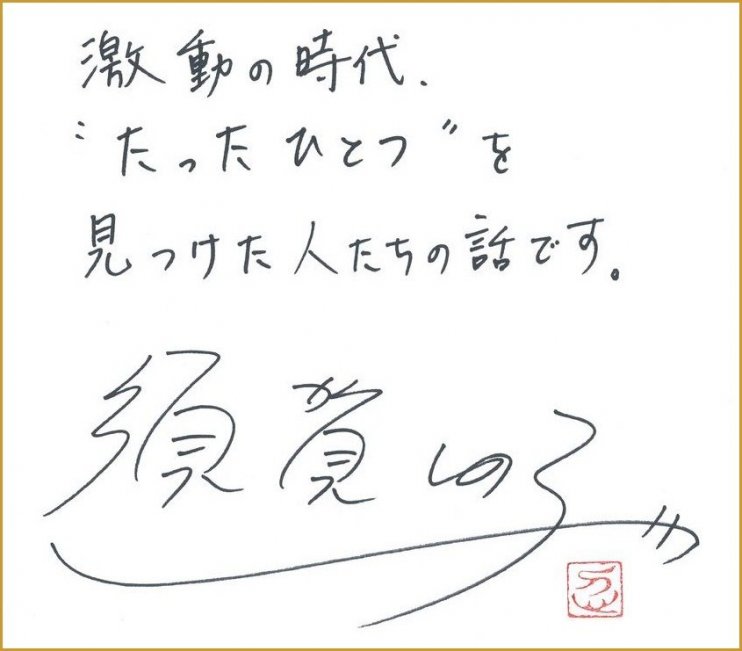 激動の時代、
〝たったひとつ〟を
見つけた人たちの話です。
須賀しのぶ